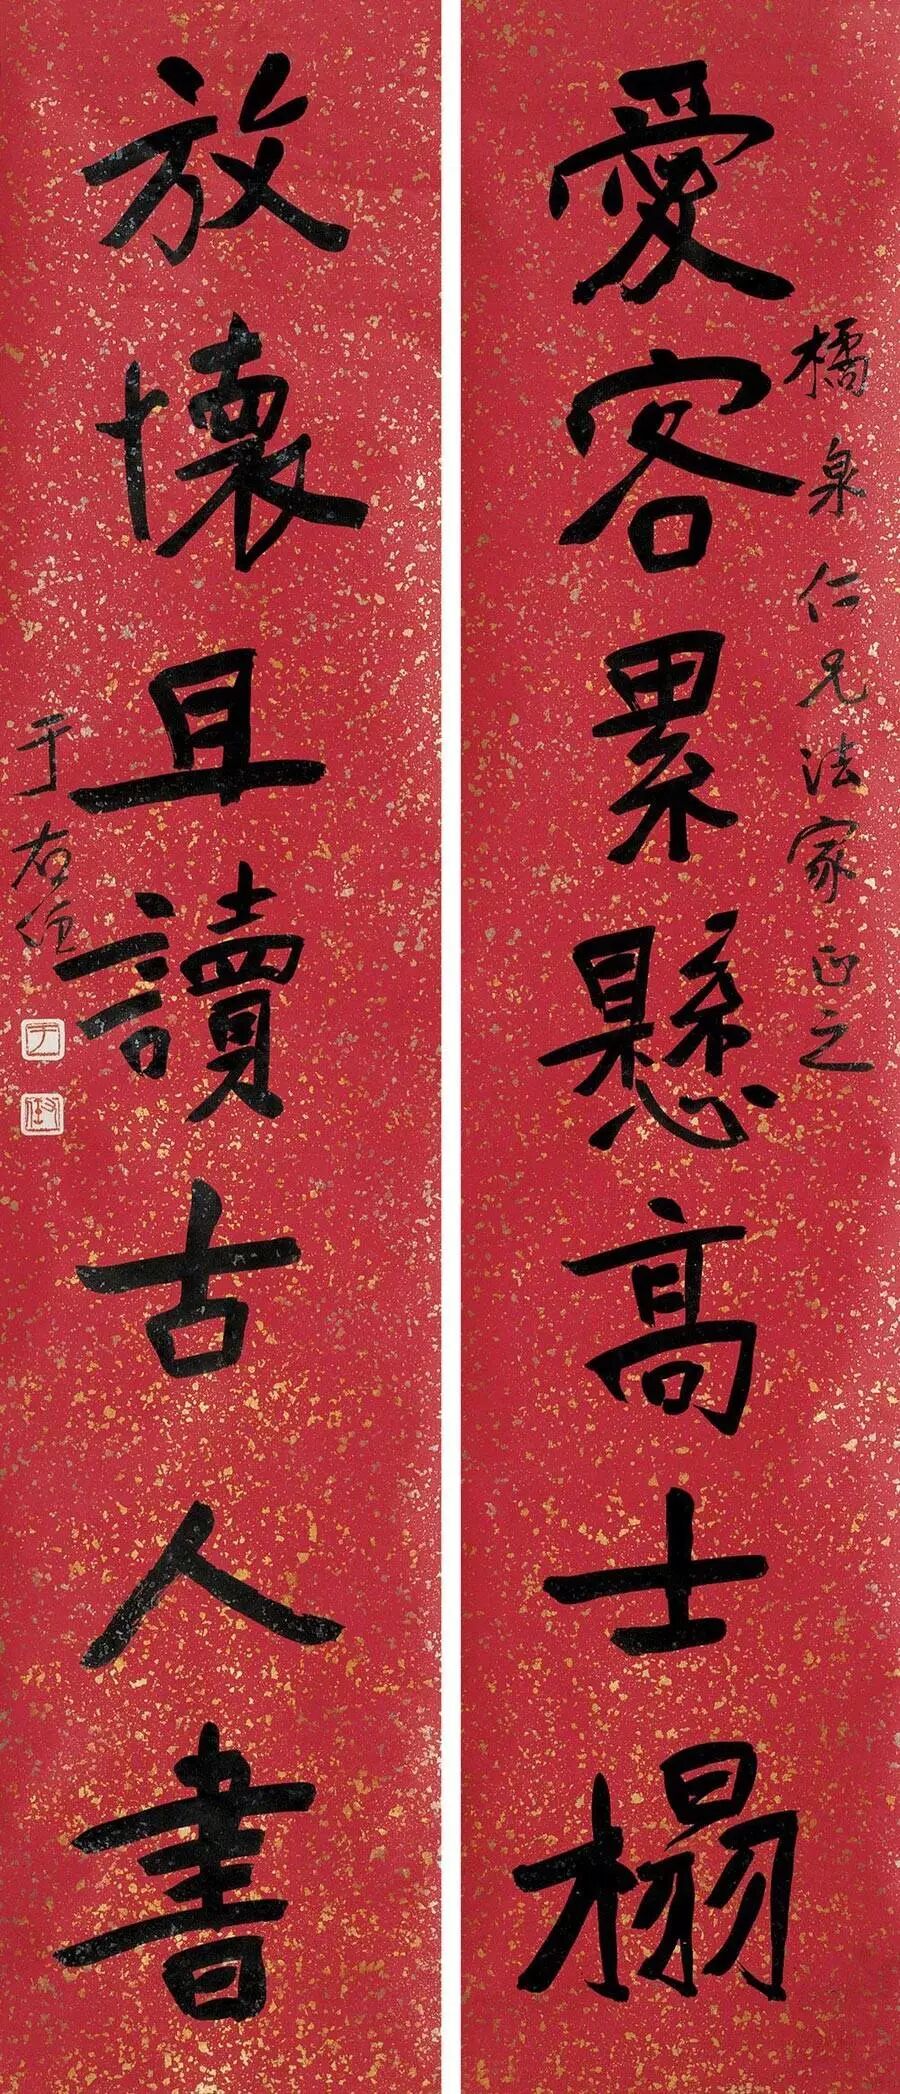 愛客累懸高士榻
橘泉仁兄法家正之
放懷且讀古人書
于右任